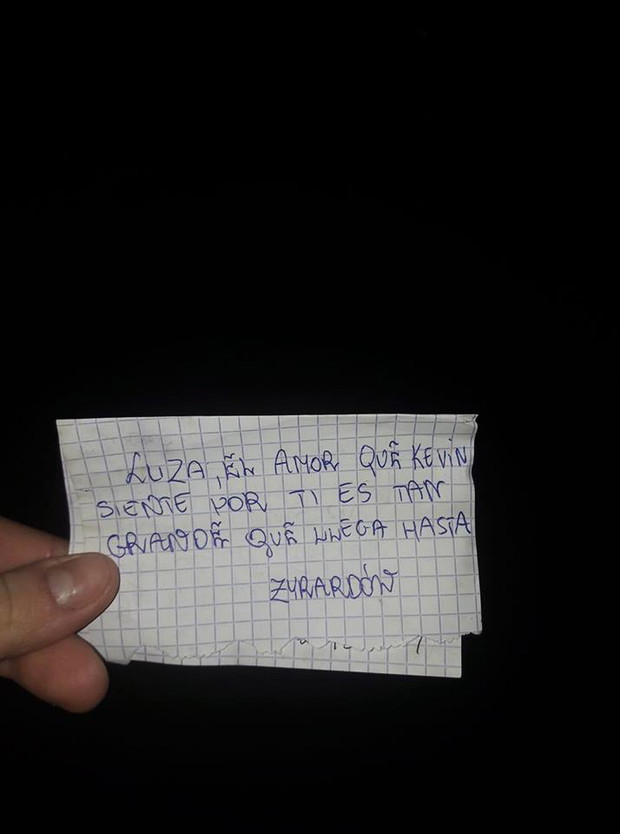 LUZA, EL AMOR QUE KEVIN
SIENTE POR TI ES TAN
GRANDE QUE LLEGA HASTA
ZYRARDÓN